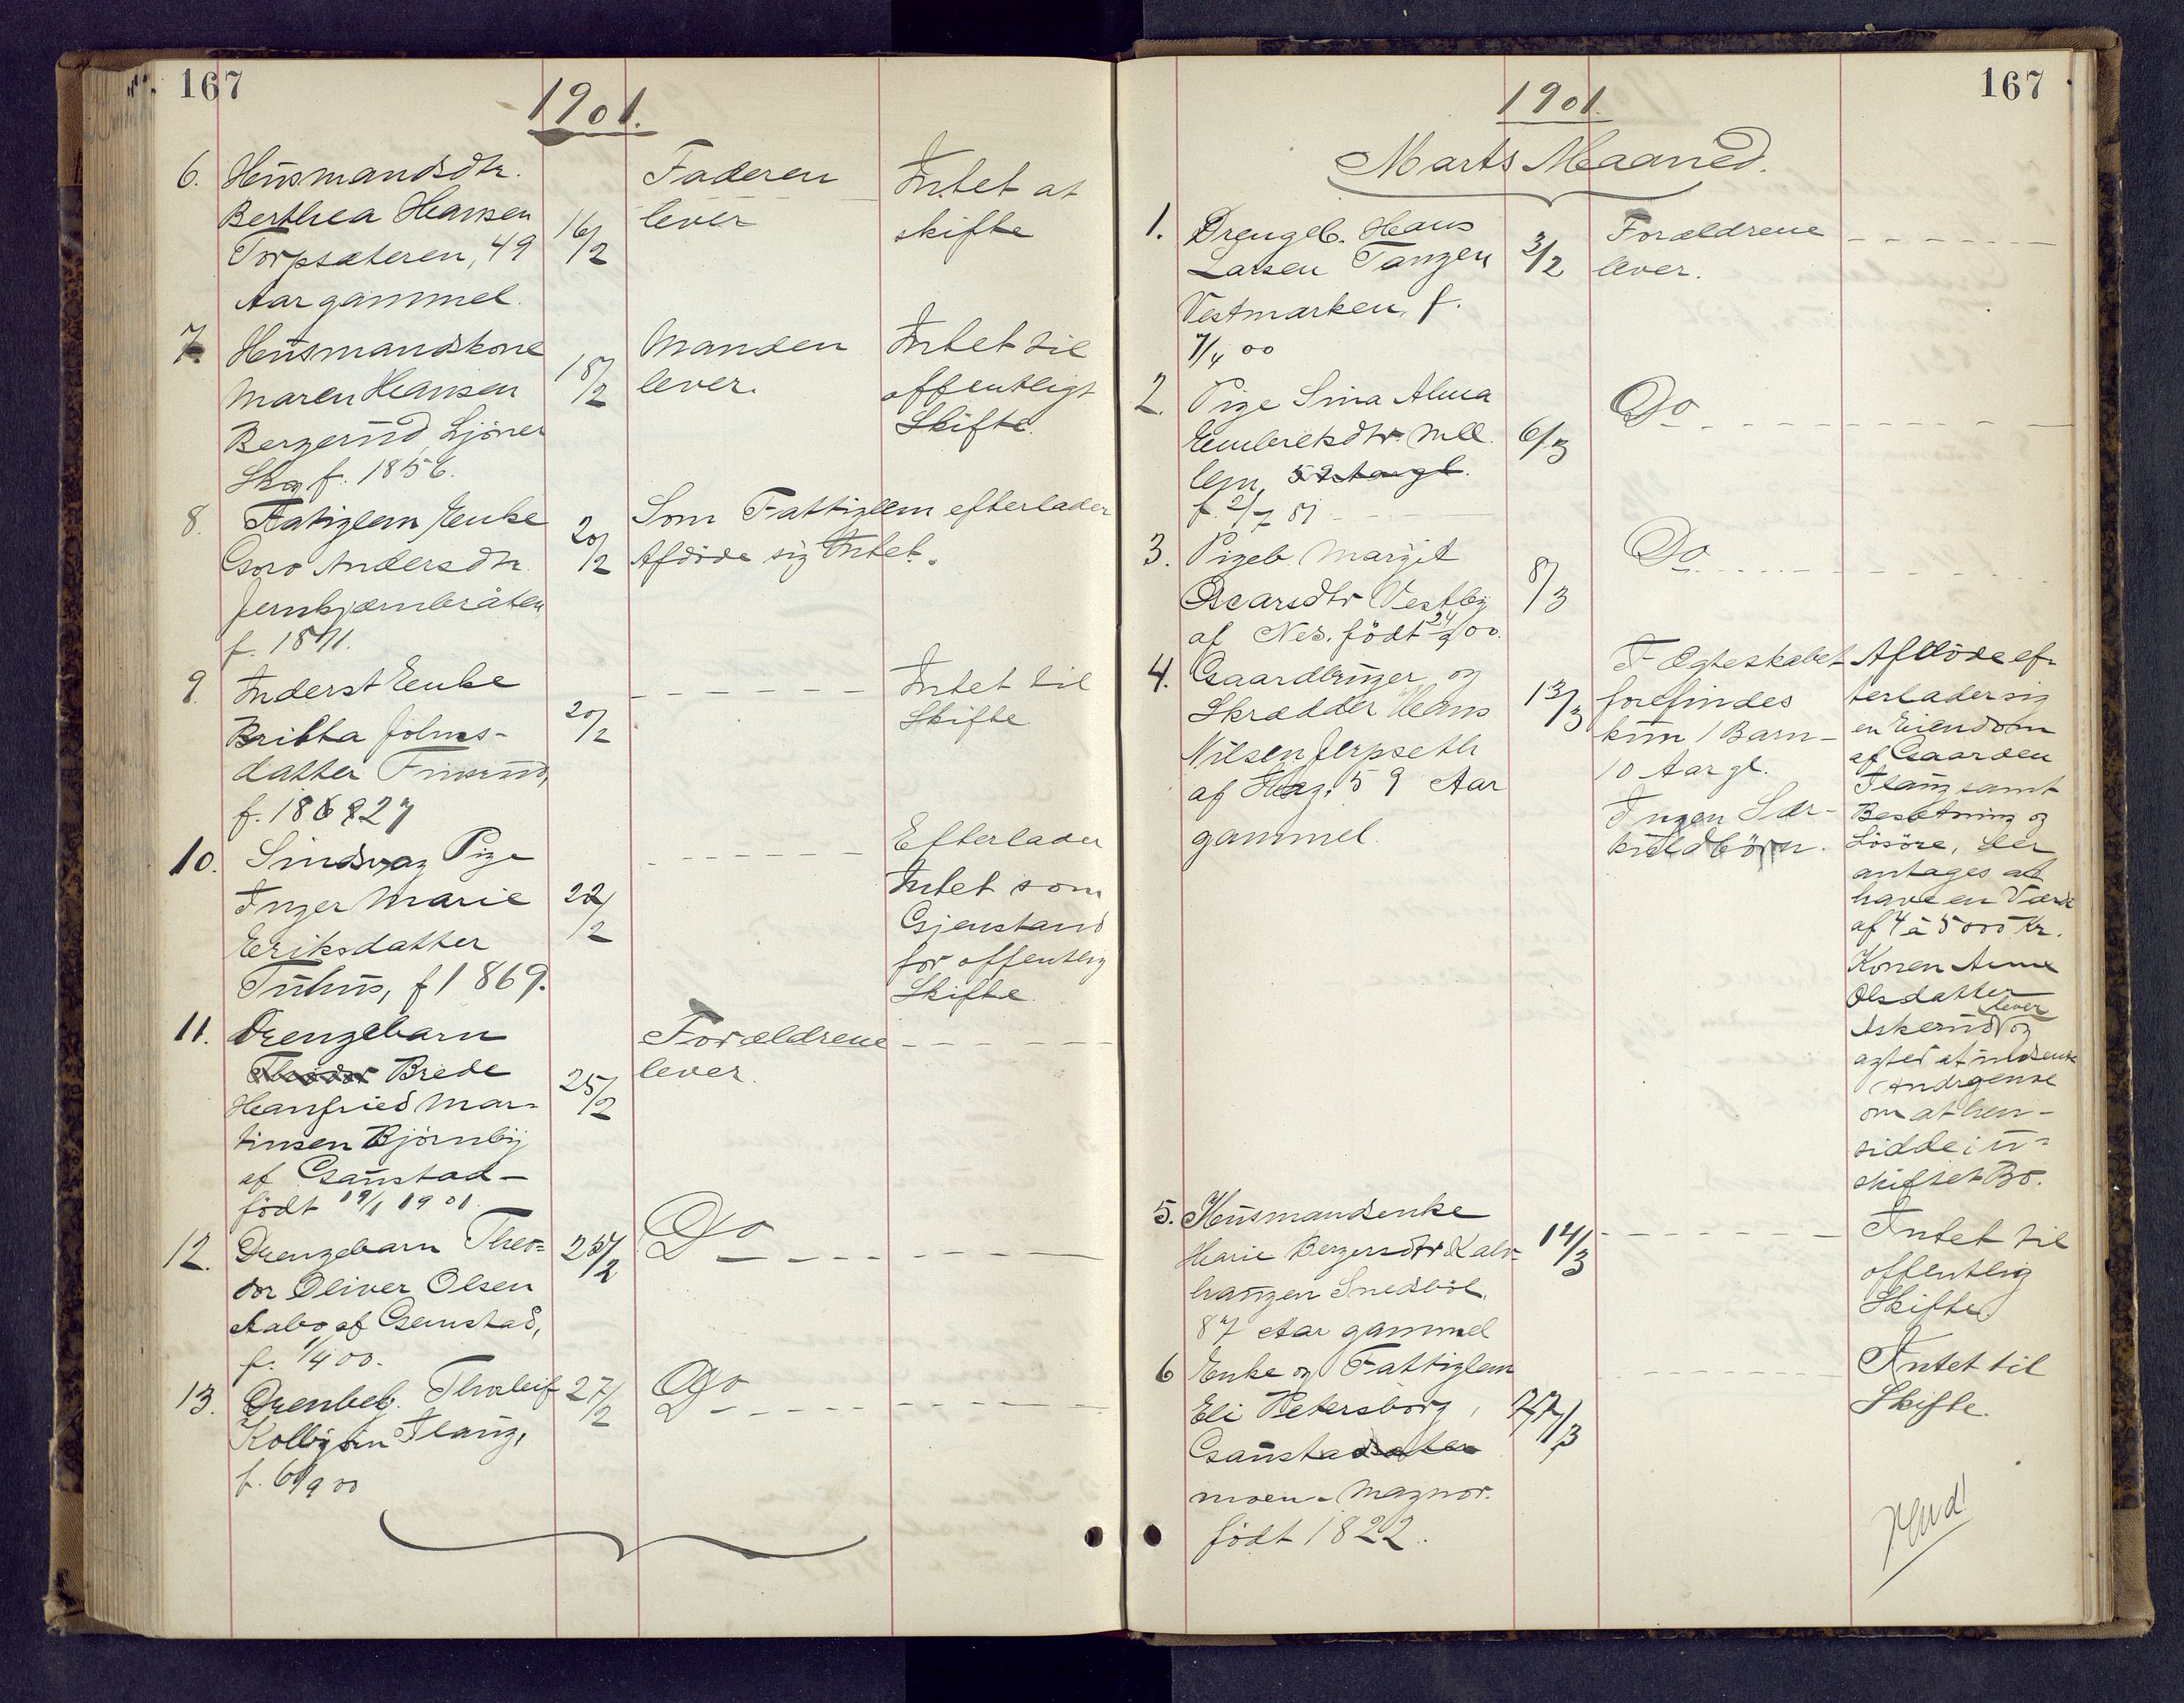 167
1901.
6. Husmandsdtr.
Berthea Hansen
Torpsæteren, 49
Aar gammel.
16/2
Faderen
lever
Intet at
skifte
7. Husmandskone
Maren Hansen
Bergerud Ljöner
Skog f. 1856.
18/2
Manden
lever.
Intet til
offentligt
Skifte.
8. Fatiglem Enke
Goro Andersdtr.
Jernbjørnbråten
f. 1841.
20/2
Som Fattiglem efterlader
Afdöde sig Intet.
9. Inderst Enke
Britta Johns-
datter
f. 1827
20/2
Intet til
Skifte
10. Sindsvag Pige
Inger Marie
Eriksdatter
Tuhus, f 1869.
22/2
Efterlader
Intet som
Gjenstand
for offentlig
Skifte.
11. Drengebarn
Brede
Hanfried Mar-
tinsen Björnby
af Gaustad-
födt 19/1 1901.
25/2
Forældrene
lever.
12. Drengebarn Theo-
dor Oliver Olsen
Aabo af Gaustad,
f. 1/4 00.
25/2
Do
13. Drenbeb. Thorleif
Kolbjörn Flaug,
f. 6/9 00
27/2
Do
167
1901.
Marts Maaned.
1. Drengeb. Hans
Larsen Tangen
Vestmarken, f.
7/4 00
3/2
Forældrene
lever.
2. Pige Sina Alma
Embretsdtr. Mel
lem, 59 Aar gl.
f. 2/7 81
6/3
Do
3. Pigeb. Margit
Oscarsdtr Vestby
af Nes. födt 24/2 00.
8/3
Do
4. Gaardbruger og
Skrædder Hans
Nilsen Jerpseth
af Haug. 59 Aar
gammel.
13/3
I Ægteskabet
forefindes
kun 1 Barn-
10 Aar gl.
Ingen Sær-
kuldbörn.
Afdöde ef-
terlader sig
en Eiendom
af Gaarden
Flaug samt
Besætning og
Lösöre, der
antages at
have en Værdi
af 4 à 5000 Kr.
Konen Anne
Olsdatter
Askerud lever og
agter at indsende
Andragende
om at hen-
sidde i u-
skiftet Bo.
5. Husmandsenke
Marie Bergersdtr Kalv-
haugen Snedböl.
87 Aar gammel
14/3
Intet til
offentlig
Skifte
6 Enke og Fattiglem
Eli Petersborg,
Gaustadsæter
moen - Magnor.
födt 1822.
17/3
Intet til
Skifte.